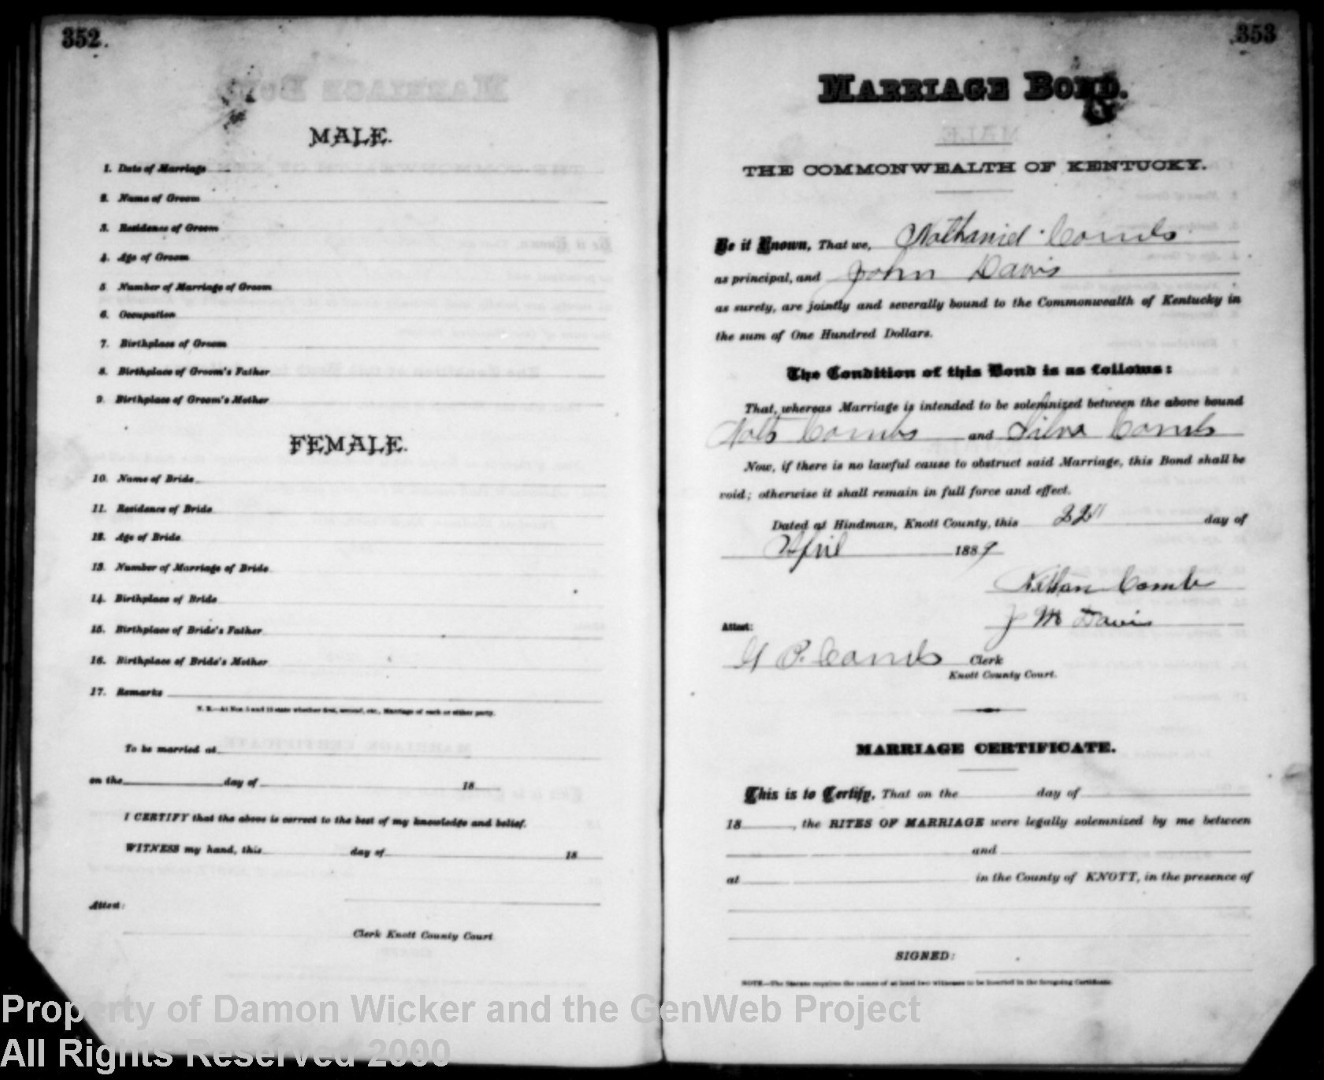 352.
MALE.
1. Date of Marriage
2. Name of Groom
3. Residence of Groom
4. Age of Groom
5 Number of Marriage of Groom
6. Occupation
7. Birthplace of Groom
8. Birthplace of Groom's Father
9. Birthplace of Groom's Mother
FEMALE.
10. Name of Bride
11. Residence of Bride
12. Age of Bride
13. Number of Marriage of Bride
14. Birthplace of Bride
15. Birthplace of Bride's Father
16. Birthplace of Bride's Mother
17. Remarks
N. B.—At Nos. 5 and 13 state whether first, second, etc., Marriage of each or either party.
To be married at
on the day of 18
I CERTIFY that the above is correct to the best of my knowledge and belief.
WITNESS my hand, this day of 18
Attest:
Clerk Knott County Court
353
MARRIAGE BOND.
THE COMMONWEALTH OF KENTUCKY.
Be it Known, That we, Nathaniel Combs
as principal, and John Davis
as surety, are jointly and severally bound to the Commonwealth of Kentucky in
the sum of One Hundred Dollars.
The Condition of this Bond is as follows:
That, whereas Marriage is intended to be solemnized between the above bound
Combs and Combs
Now, if there is no lawful cause to obstruct said Marriage, this Bond shall be
void; otherwise it shall remain in full force and effect.
Dated at Hindman, Knott County, this 22 day of
April 1889
Combs
J M Davis
Attest:
P. Combs Clerk
Knott County Court.
MARRIAGE CERTIFICATE.
This is to Certify, That on the day of
18 , the RITES OF MARRIAGE were legally solemnized by me between
and
at in the County of KNOTT, in the presence of
SIGNED:
NOTE.—The Statute requires the names of at least two witnesses to be inserted in the foregoing Certificate.
Property of Damon Wicker and the GenWeb Project
All Rights Reserved 2000